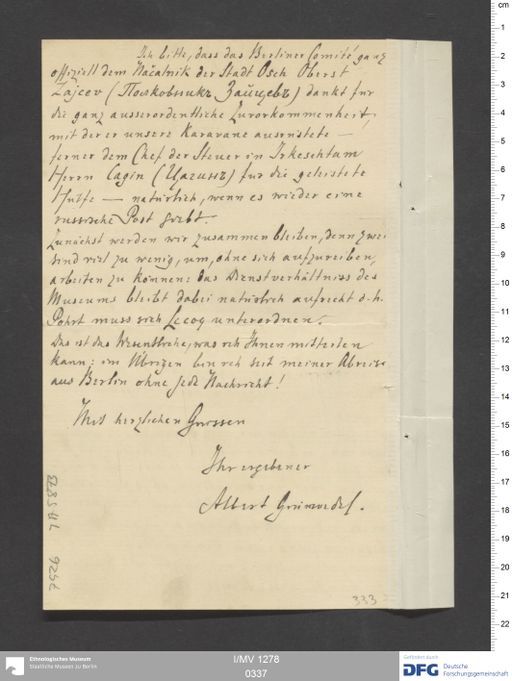 Ich bitte, dass das Berliner Comité ganz
offiziell dem Načalnik der Stadt Osch Oberst
Zajcev (Полковникъ Зайцевъ) dankt für
die ganz ausserordentliche Zuvorkommenheit,
mit der er unsere Karavane ausrüstete —
ferner dem Chef der Steuer in Irkeschtam
Herrn Cagin (Цагинъ) für die geleistete
Hülfe — natürlich, wenn es wieder eine
russische Post giebt.
Zunächst werden wir zusammen bleiben, denn zwei
sind viel zu wenig, um, ohne sich aufzureiben,
arbeiten zu können: das Dienstverhältniss des
Museums bleibt dabei natürlich aufrecht d.h.
Pohrt muss sich Lecoq unterordnen.
Das ist das Wesentliche, was ich Ihnen mitteilen
kann: im Übrigen bin ich seit meiner Abreise
aus Berlin ohne jede Nachricht!
Mit herzlichen Grüssen
Ihr ergebener
Albert Grünwedel.
333
cm
1
2
3
4
5
6
7
8
9
10
11
12
13
14
15
16
17
18
19
20
21
22
Ethnologisches Museum
Staatliche Museen zu Berlin
I/MV 1278
0337
Gefördert durch
DFG Deutsche
Forschungsgemeinschaft